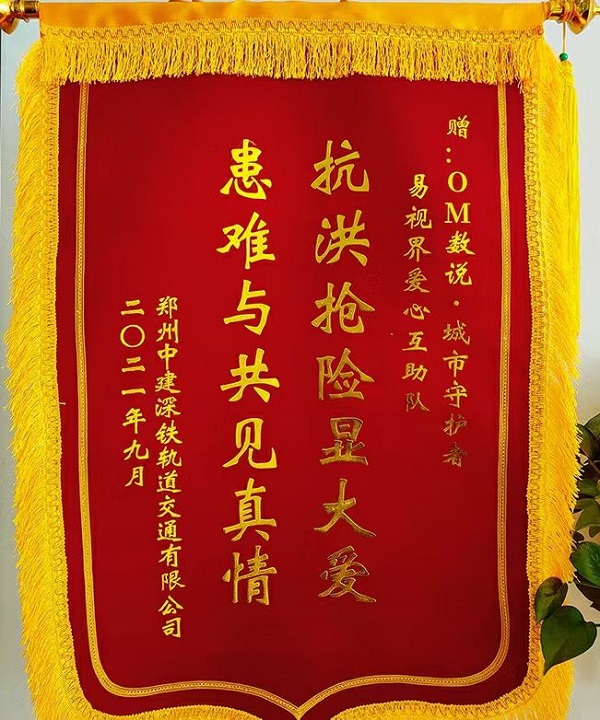 赠：OM数说·城市守护者
易视界爱心互助队
抗洪抢险显大爱
患难与共见真情
郑州中建深铁轨道交通有限公司
二〇二一年九月